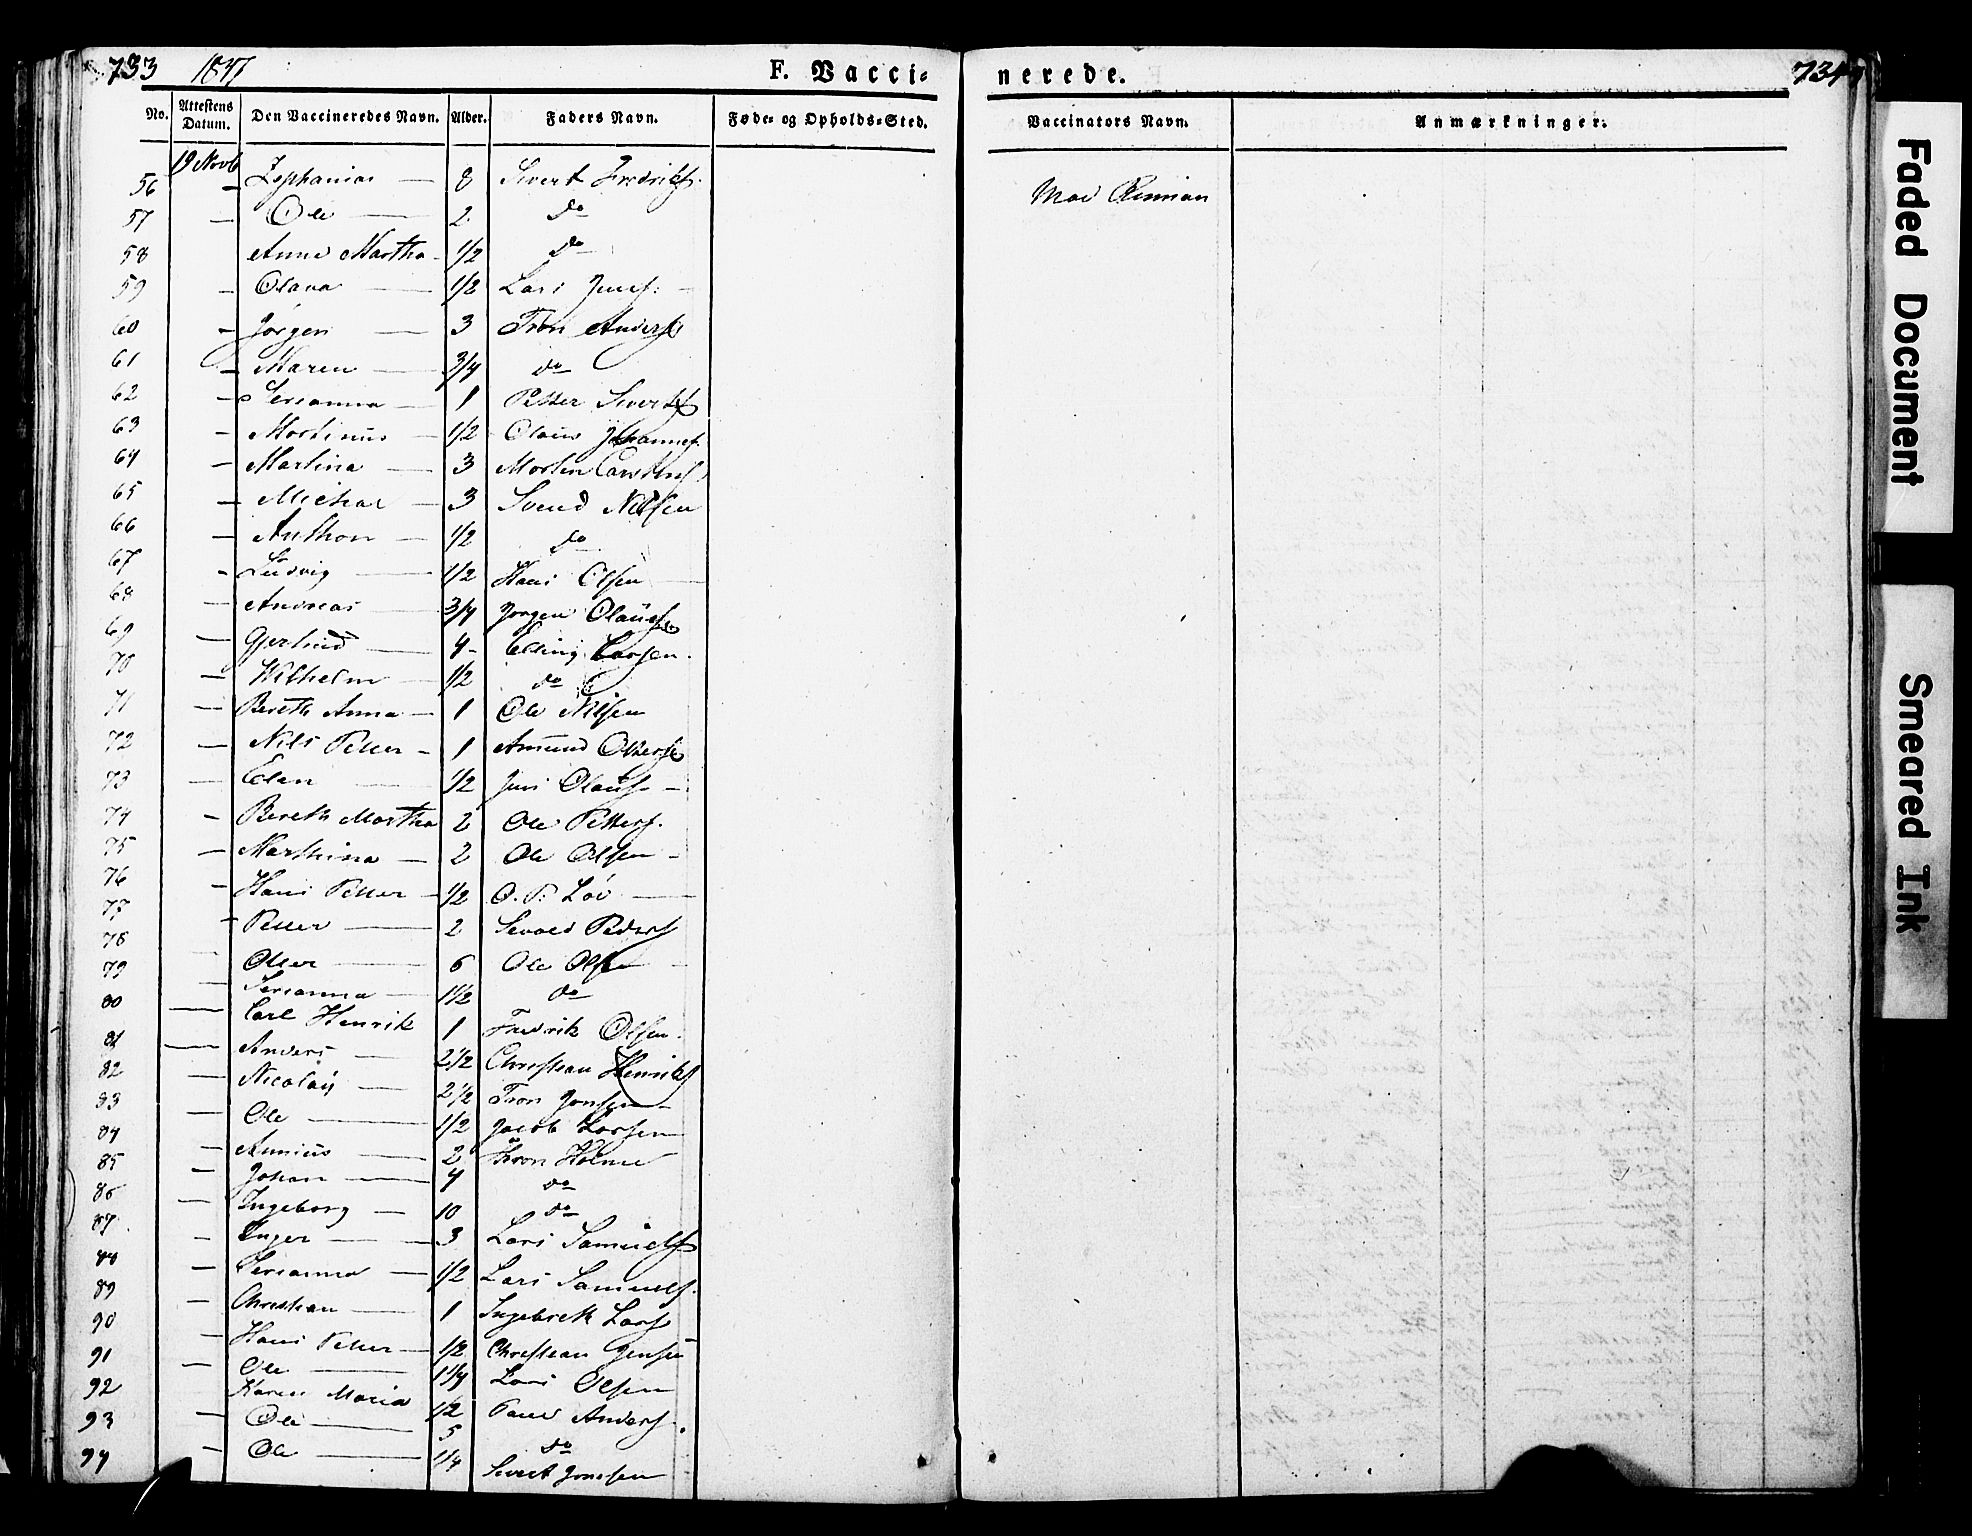 733 1847 F. Vacci- nerede. 734
No. Attestens Datum. Den Vaccineredes Navn. Alder. Faders Navn. Føde- og Opholds-Sted. Vaccinators Navn. Anmærkninger.
19 Novb
56 - Zephanias - 8 Sivert Fredriks.
57 - Ole - 2 do
58 - Anne Martha - 1/2 do
59 - Olava - 1/2 Lars Jensf. -
60 - Jørgen - 3 Tron Andersf
61 - Maren - 3/4 do
62 - Serianna - 1 Petter Sivertsf
63 - Martinus - 1/2 Olaus Johannesf.
64 - Martina - 3 Morten Carstensf.
65 - Michal - 3 Svend Nilsen
66 - Anthon - 1/2 do
67 - Ludvig - 1/2 Hans Olsen
68 - Andreas - 3/4 Jørgen Olausf
69 - Gjertrud - 4 - Elling Larsen.
70 - Wilhelm - 1/2 do
71 - Bereth Anna - 1 Ole Nilsen
72 - Nils Petter - 1 Amund Ottersf
73 - Elen - 1/2 Jens Olausf -
74 - Bereth Martha 2 Ole Pettersf.
75 - Marthina - 2 Ole Olsen -
76 - Hans Petter - 1/2 O. P. Løv -
77 - Petter - 2 Sivald Pedersf
78 - Otter - 6 Ole Olsen -
79 - Serianna - 1 1/2 do
80 - Carl Henrik 1 Fredrik Olsen.
81 - Anders - 2 1/2 Christian Henriksf
82 - Nicolaij - 2 1/2 Tron Jonsen -
83 - Ole - 1/2 Jacob Larsen
84 - Annius - 2 Thron Holme
85 - Johan - 4 do
86 - Ingeborg - 10 do
87 - Inger - 3 Lars Samuelsf
88 - Serianna - 1/2 Lars Samuelsf.
89 - Christian - 1 Ingebrekt Larsf
90 - Hans Petter - 1/2 Christian Jensen
91 - Ole - 1 1/4 Lars Olsen
92 - Karen Maria 1/2 Paul Andersf.
93 - Ole - 5 do
94 - Ole - 1/4 Sivert Jonssen
Mad
Faded Document
Smeared Ink